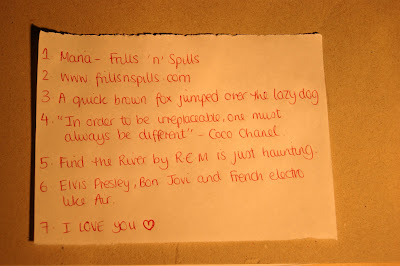 1. Maria - Frills 'n' Spills
2. www.frillsnspills.com
3. A quick brown fox jumped over the lazy dog
4. "In order to be irreplaceable, one must
always be different" - Coco Chanel.
5. Find the River by R.E.M is just haunting.
6. Elvis Presley, Bon Jovi and French electro
like Air.
7. I LOVE YOU ♡